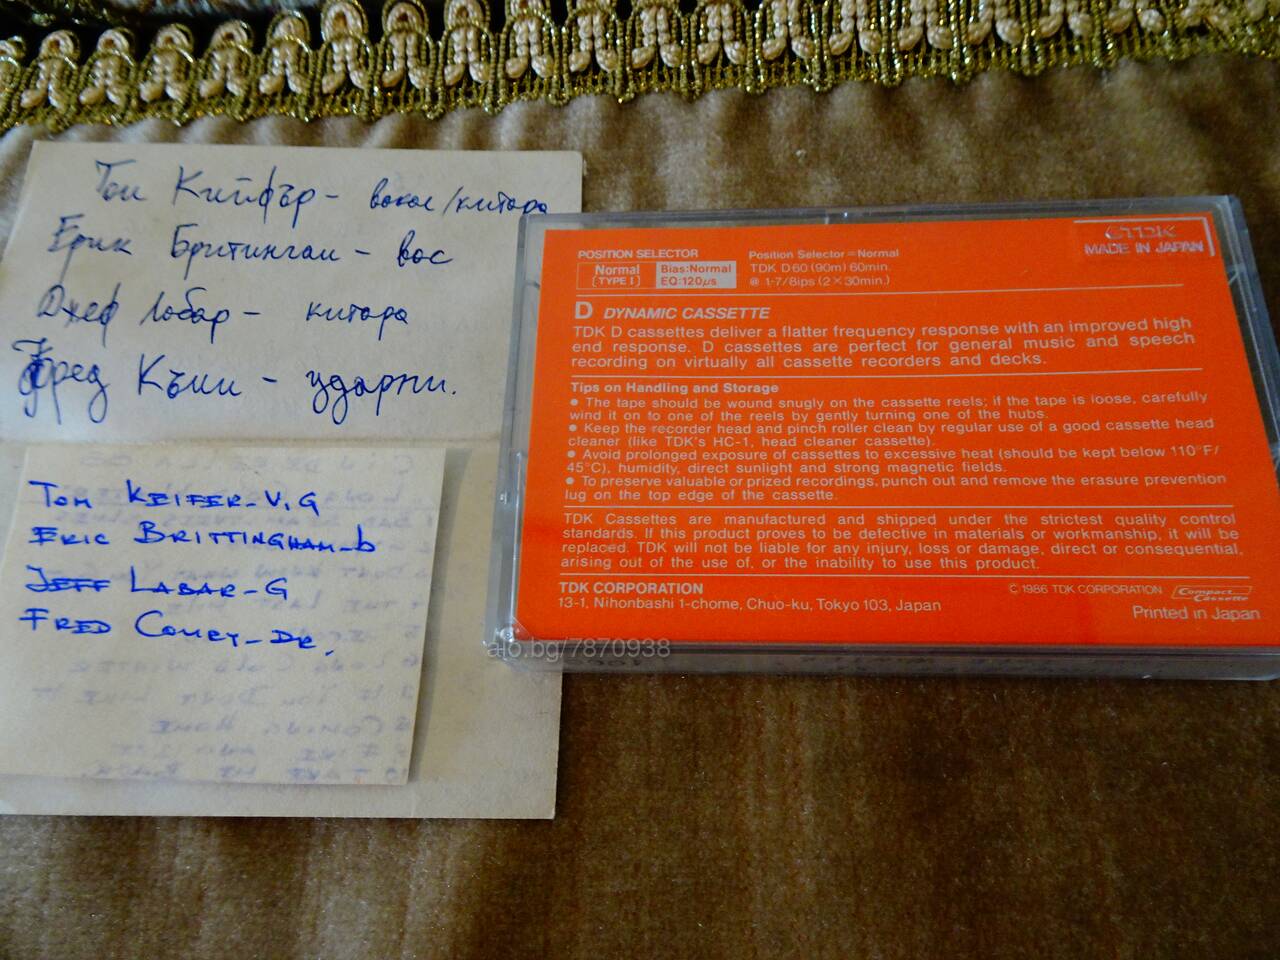 Том Кийфър - вокал/китара
Ерик Бритингам - бос
Джеф Лабар - китара
Фред Къми - ударни.
TOM KEIFER-V,G
ERIC BRITTINGHAM-b
JEFF LABAR-G
FRED COURY-DR.
POSITION SELECTOR
Normal
[TYPE I]
Bias:Normal
EQ:120μs
Position Selector=Normal
TDK D60 (90m) 60min.
@ 1-7/8ips (2×30min.)
TDK
MADE IN JAPAN
D DYNAMIC CASSETTE
TDK D cassettes deliver a flatter frequency response with an improved high
end response. D cassettes are perfect for general music and speech
recording on virtually all cassette recorders and decks.
Tips on Handling and Storage
● The tape should be wound snugly on the cassette reels; if the tape is loose, carefully
wind it on to one of the reels by gently turning one of the hubs.
● Keep the recorder head and pinch roller clean by regular use of a good cassette head
cleaner (like TDK's HC-1, head cleaner cassette).
● Avoid prolonged exposure of cassettes to excessive heat (should be kept below 110°F/
45°C), humidity, direct sunlight and strong magnetic fields.
● To preserve valuable or prized recordings, punch out and remove the erasure prevention
lug on the top edge of the cassette.
TDK Cassettes are manufactured and shipped under the strictest quality control
standards. If this product proves to be defective in materials or workmanship, it will be
replaced. TDK will not be liable for any injury, loss or damage, direct or consequential,
arising out of the use of, or the inability to use this product.
TDK CORPORATION
13-1, Nihonbashi 1-chome, Chuo-ku, Tokyo 103, Japan
© 1986 TDK CORPORATION
Compact
Cassette
Printed in Japan
alo.bg/7870938